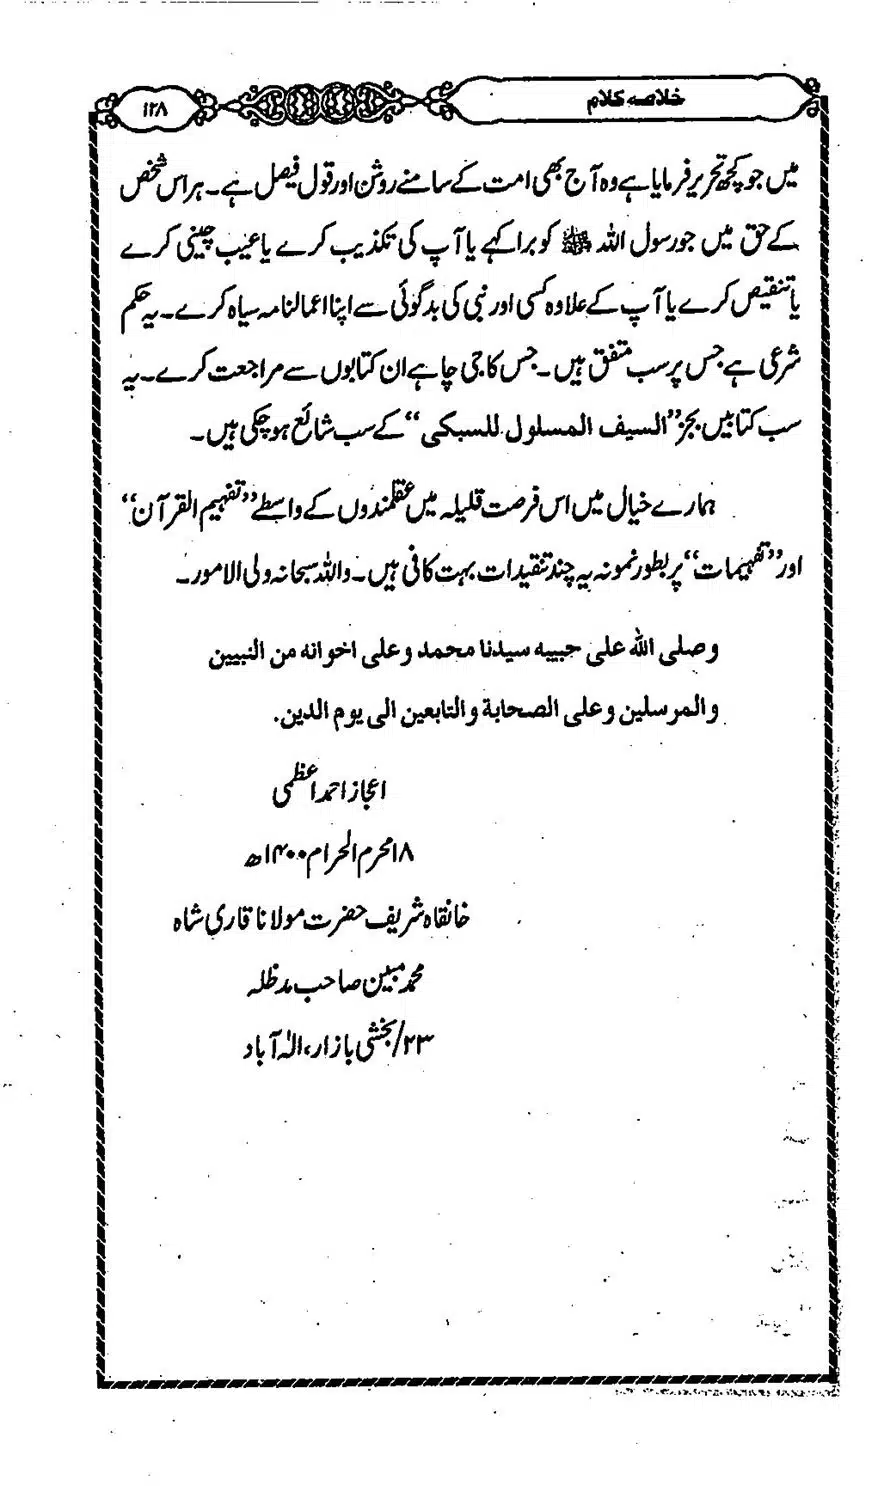 خلاصہ کلام
۱۲۸
میں جو کچھ تحریر فرمایا ہے وہ آج بھی امت کے سامنے روشن اور قول فیصل ہے۔ ہر اس شخص
کے حق میں جو رسول اللہ ﷺ کو برا کہے یا آپ کی تکذیب کرے یا عیب چینی کرے
یا تنقیص کرے یا آپ کے علاوہ کسی اور نبی کی بدگوئی سے اپنا اعمالنامہ سیاہ کرے۔ یہ حکم
شرعی ہے جس پر سب متفق ہیں۔ جس کا جی چاہے ان کتابوں سے مراجعت کرے۔ یہ
سب کتابیں بجز ”السیف المسلول للسبکی“ کے سب شائع ہوچکی ہیں۔
ہمارے خیال میں اس فرصت قلیلہ میں عقلمندوں کے واسطے ”تفہیم القرآن“
اور ”تفہیمات“ پر بطور نمونہ یہ چند تنقیدات بہت کافی ہیں۔ واللہ سبحانہ ولی الامور۔
وصلی الله علی حبیبه سیدنا محمد وعلی اخوانه من النبیین
والمرسلین وعلی الصحابة والتابعین الی یوم الدین.
اعجاز احمد اعظمی
۱۸ محرم الحرام ۱۴۰۰ھ
خانقاہ شریف حضرت مولانا قاری شاہ
محمد مبین صاحب مدظلہ
۲۳/بخشی بازار، الٰہ آباد